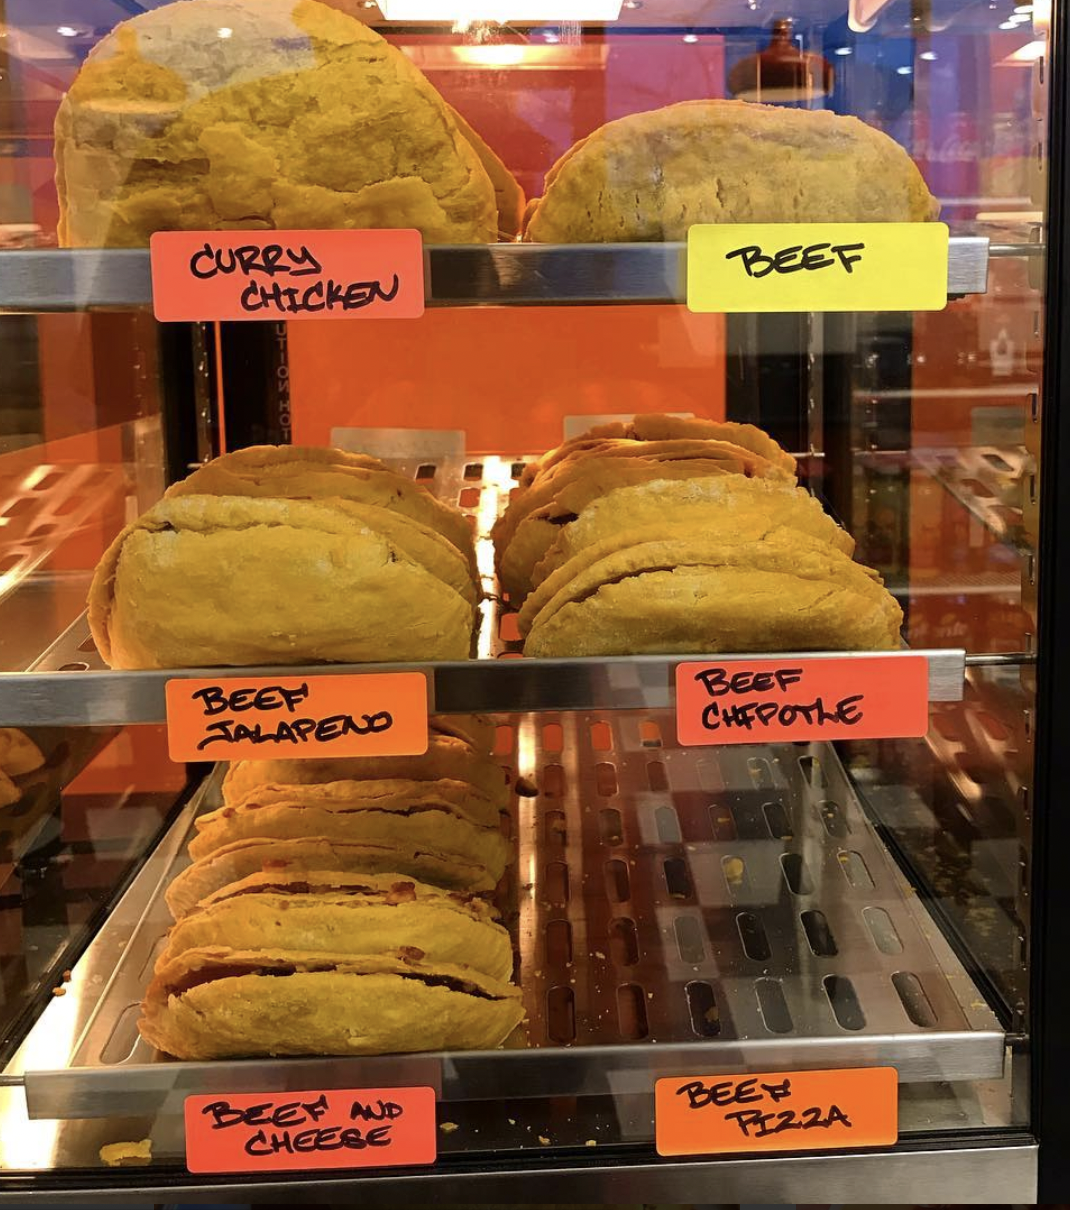 CURRY
CHICKEN
BEEF
BEEF
JALAPENO
BEEF
CHIPOTLE
BEEF AND
CHEESE
BEEF
PIZZA